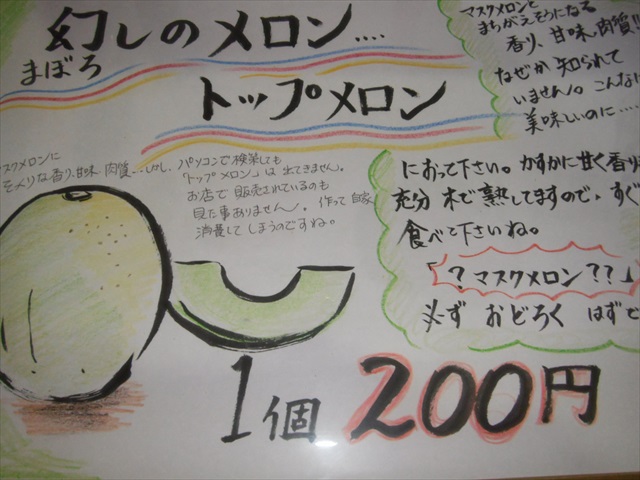 幻しのメロン....
まぼろ
トップメロン
マスクメロンと
まちがえそうになる
香り、甘味、肉質!!
なぜか知られて
いません。こんなに
美味しいのに....
スクメロンに
そっくりな香り、甘味 肉質...しかし、パソコンで検索しても
「トップメロン」は出てきません。
お店で販売されているのも
見た事ありません。作って自家
消費してしまうのですね。
におって下さい。かすかに甘く香り
充分 木で熟してますので、すぐ
食べて下さいね。
「?マスクメロン??」
必ず おどろく はずで
1個 200円